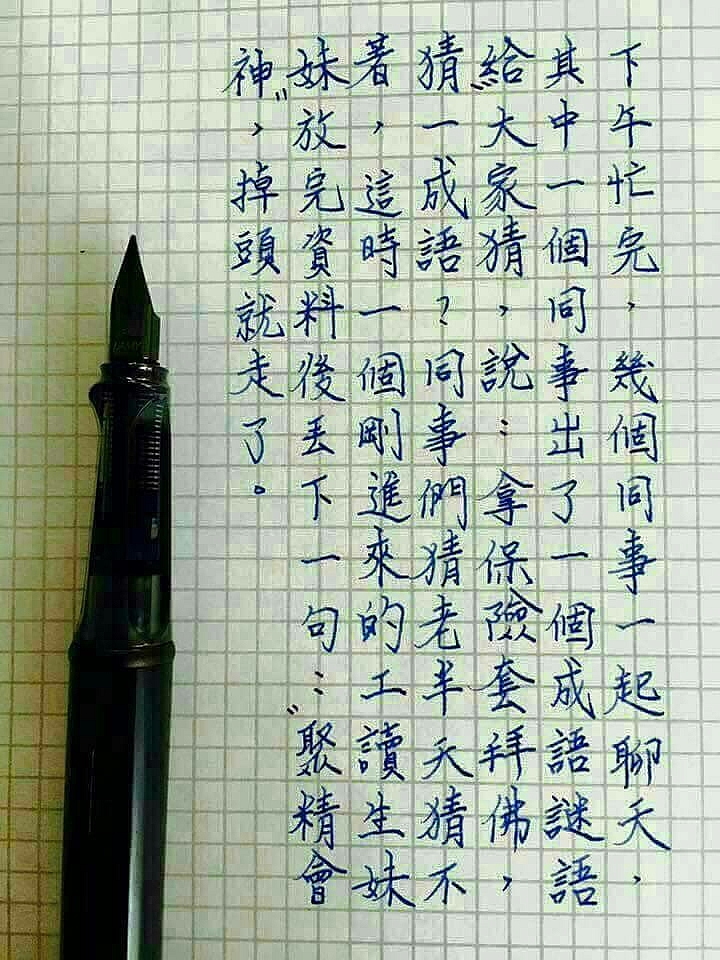 下午忙完,幾個同事一起聊天,
其中一個同事出了一個成語謎語
給大家猜,說:拿保險套拜佛,
猜一成語?同事們猜老半天猜不
著,這時一個剛進來的工讀生妹
妹放完資料後丟下一句:"聚精會
神",掉頭就走了。